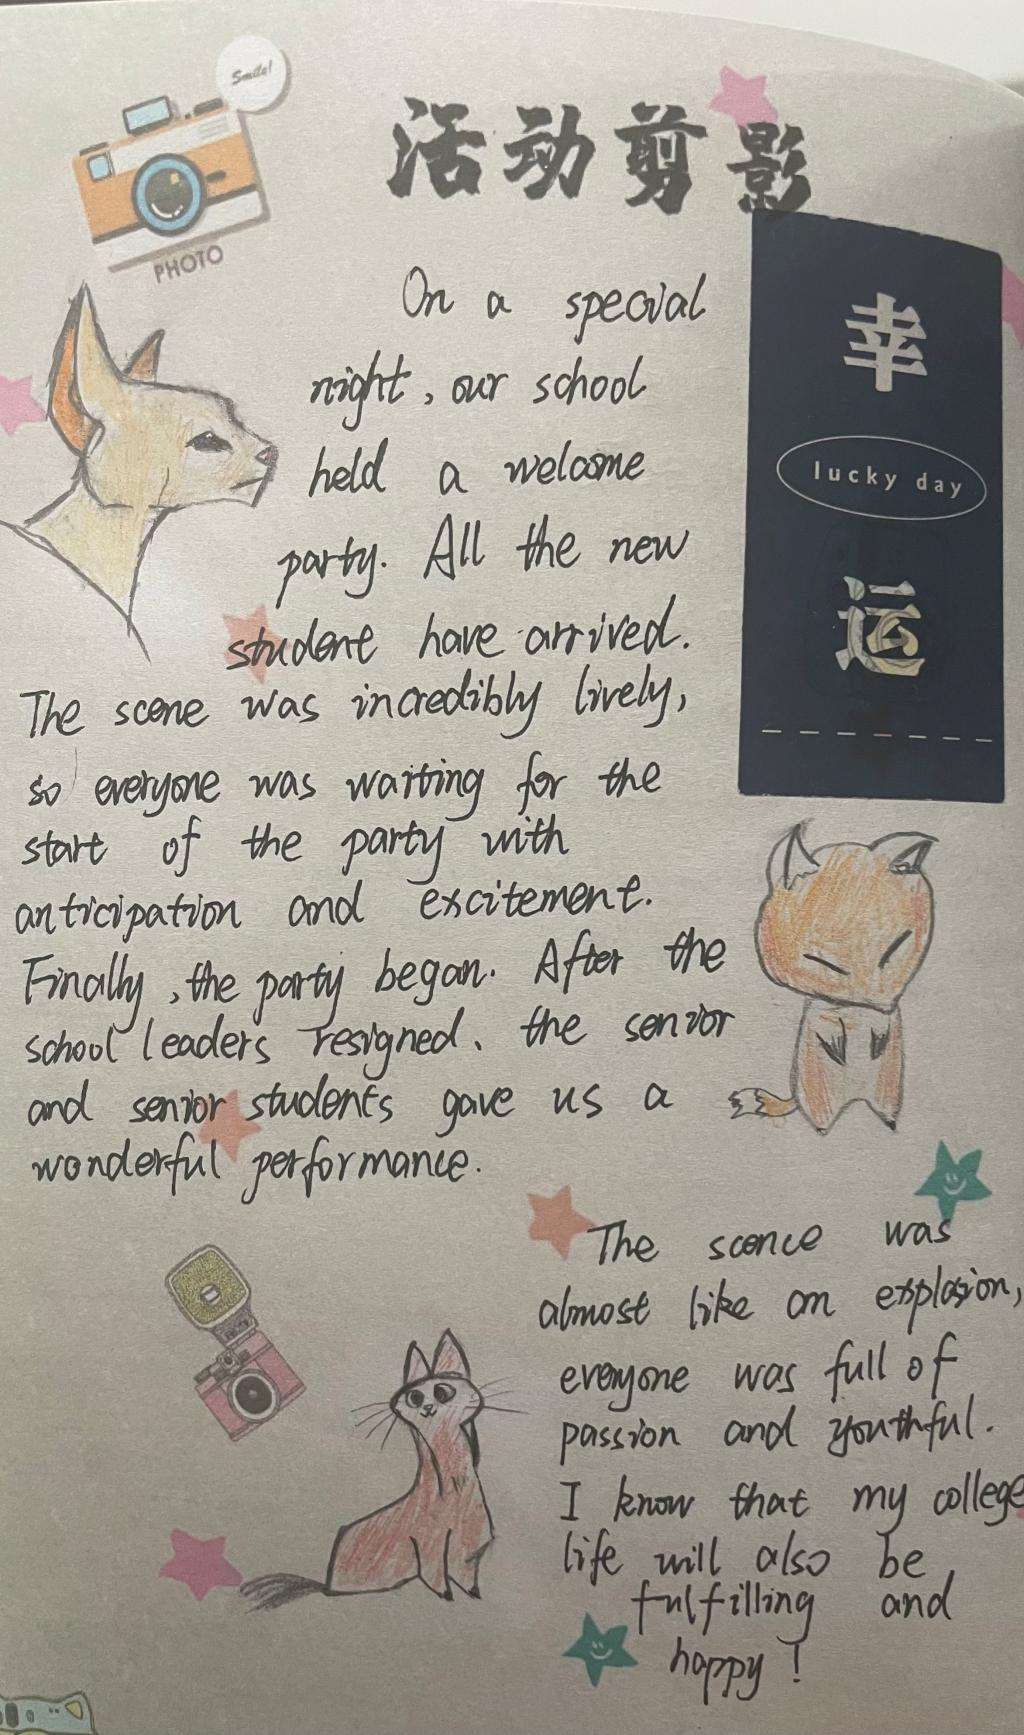 Smile!
活动剪影
PHOTO
幸
lucky day
运
On a special
night, our school
held a welcome
party. All the new
student have arrived.
The scene was incredibly lively,
so everyone was waiting for the
start of the party with
anticipation and excitement.
Finally, the party began. After the
school leaders resigned, the senior
and senior students gave us a
wonderful performance.
The scence was
almost like an explosion,
everyone was full of
passion and youthful.
I know that my college
life will also be
fulfilling and
happy!